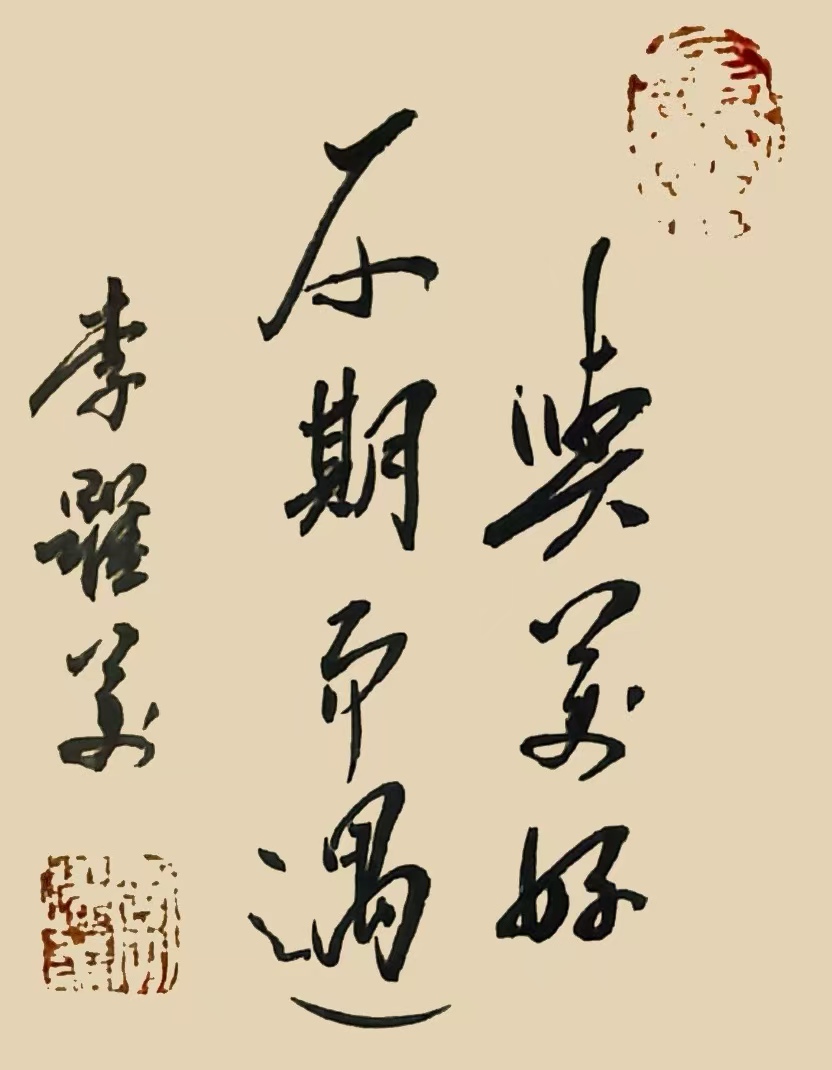 與美好
不期而遇
李躍美